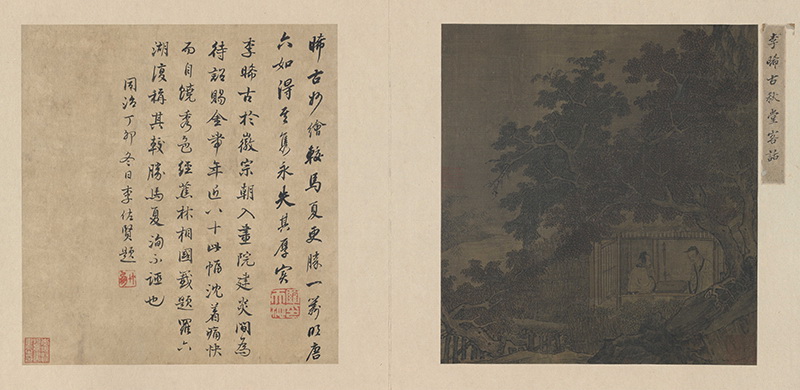 李晞古秋堂客話
晞古妙繪較馬夏更勝一籌明唐
六如得其雋永失其厚實
李晞古於徽宗朝入畫院建炎間為
待詔賜金帶年近八十此幅沈着痛快
而自饒秀色經蕉林相國籤題羅六
湖稱其較勝馬夏洵不誣也
同治丁卯冬日李佐賢題